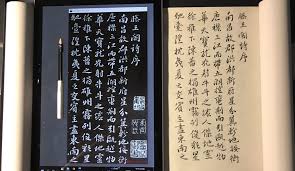 滕王閣詩序
南昌故郡洪都新府星分翼軫地接衡
廬襟三江而帶五湖控蠻荊而引甌越物
華天寶龍光射斗牛之墟人傑地靈
徐孺下陳蕃之榻雄州霧列俊彩星
馳臺隍枕夷夏之交賓主盡東南之
滕王閣詩序
南昌故郡洪都新府星分翼軫地接衡
廬襟三江而帶五湖控蠻荊而引甌越物
華天寶龍光射斗牛之墟人傑地靈
徐孺下陳蕃之榻雄州霧列俊彩星
馳臺隍枕夷夏之交賓主盡東南之